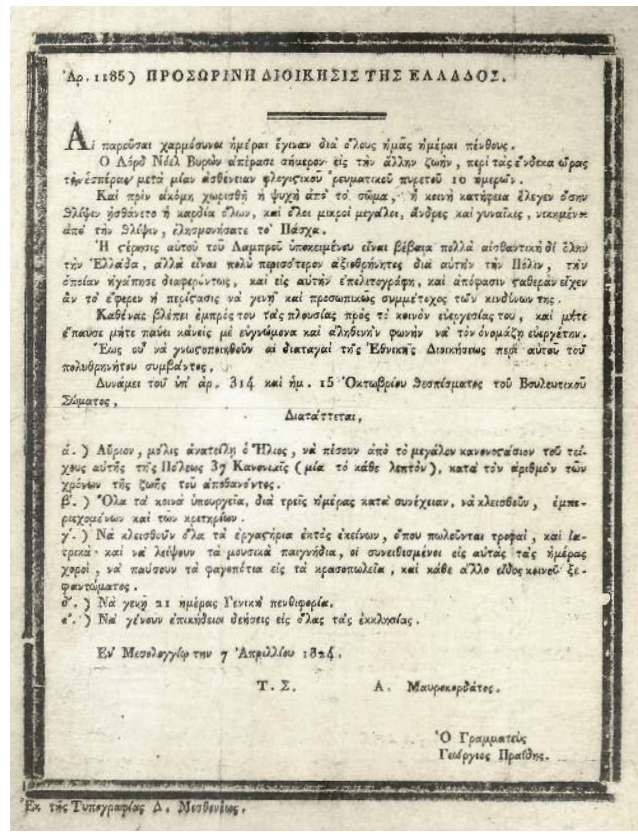 Ἀρ. 1185) ΠΡΟΣΩΡΙΝΗ ΔΙΟΙΚΗΣΙΣ ΤΗΣ ΕΛΛΑΔΟΣ.
Αἱ παροῦσαι χαρμόσυνοι ἡμέραι ἔγιναν διὰ ὅλους ἡμᾶς ἡμέραι πένθους.
Ὁ Λὸρδ Νόελ Βυρὼν ἀπέρασε σήμερον εἰς τὴν ἄλλην ζωὴν, περὶ τὰς ἕνδεκα ὥρας
τὴν ἑσπέραν μετὰ μίαν ἀσθένειαν φλογιστικοῦ ῥευματικοῦ πυρετοῦ 10 ἡμερῶν.
Καὶ πρὶν ἀκόμη χωρισθῇ ἡ ψυχὴ ἀπὸ τὸ σῶμα, ἡ κοινὴ κατήφεια ἔλεγεν ὅσην
θλίψιν ᾐσθάνετο ἡ καρδία ὅλων, καὶ ὅλοι μικροὶ μεγάλοι, ἄνδρες καὶ γυναῖκες, νικημένοι
ἀπὸ τὴν θλίψιν, ἐλησμονήσατε τὸ Πάσχα.
Ἡ στέρησις αὐτοῦ τοῦ Λαμπροῦ ὑποκειμένου εἶναι βέβαια πολλὰ αἰσθαντικὴ δι' ὅλην
τὴν Ἑλλάδα, ἀλλὰ εἶναι πολὺ περισσότερον ἀξιοθρήνητος διὰ αὐτὴν τὴν Πόλιν, τὴν
ὁποίαν ἠγάπησε διαφερόντως, καὶ εἰς αὐτὴν ἐπολιτογράφη, καὶ ἀπόφασιν σταθερὰν εἶχεν
ἂν τὸ ἔφερεν ἡ περίστασις νὰ γενῇ καὶ προσωπικῶς συμμέτοχος τῶν κινδύνων της.
Καθένας βλέπει ἐμπρός του τὰς πλουσίας πρὸς τὸ κοινὸν εὐεργεσίας του, καὶ μήτε
ἔπαυσε μήτε παύει κανεὶς μὲ εὐγνώμονα καὶ ἀληθινὴν φωνὴν νὰ τὸν ὀνομάζῃ εὐεργέτην.
Ἕως οὗ νὰ γνωστοποιηθοῦν αἱ διαταγαὶ τῆς Ἐθνικῆς Διοικήσεως περὶ αὐτοῦ τοῦ
πολυθρηνήτου συμβάντος,
Δυνάμει τοῦ ὑπ' ἀρ. 314 καὶ ἡμ. 15 Ὀκτωβρίου Θεσπίσματος τοῦ Βουλευτικοῦ
Σώματος,
Διατάττεται,
ά.) Αὔριον, μόλις ἀνατείλῃ ὁ Ἥλιος, νὰ πέσουν ἀπὸ τὸ μεγάλον κανονοστάσιον τοῦ τεί-
χους αὐτῆς τῆς Πόλεως 37 Κανονιαῖς (μία τὸ κάθε λεπτὸν), κατὰ τὸν ἀριθμὸν τῶν
χρόνων τῆς ζωῆς τοῦ ἀποθανόντος.
β'.) Ὅλα τὰ κοινὰ ὑπουργεῖα, διὰ τρεῖς ἡμέρας κατὰ συνέχειαν, νὰ κλεισθοῦν, ἐμπε-
ριεχομένων καὶ τῶν κριτηρίων.
γ'.) Νὰ κλεισθοῦν ὅλα τὰ ἐργαστήρια ἐκτὸς ἐκείνων, ὅπου πωλοῦνται τροφαὶ, καὶ ἰα-
τρικά· καὶ νὰ λείψουν τὰ μουσικὰ παιγνήδια, οἱ συνειθισμένοι εἰς αὐτὰς τὰς ἡμέρας
χοροὶ, νὰ παύσουν τὰ φαγοπότια εἰς τὰ κρασοπωλεῖα, καὶ κάθε ἄλλο εἶδος κοινοῦ ξε-
φαντώματος.
δ'.) Νὰ γενῇ 21 ἡμέρας Γενικὴ πενθιφορία.
ε'.) Νὰ γένουν ἐπικήδειοι δεήσεις εἰς ὅλας τὰς ἐκκλησίας.
Ἐν Μεσολογγίῳ την 7 Ἀπριλλίου 1824.
Τ. Σ. Α. Μαυροκορδάτος.
Ὁ Γραμματεὺς
Γεώργιος Πραΐδης.
Ἐκ τῆς Τυπογραφίας Δ. Μεσθενέως.